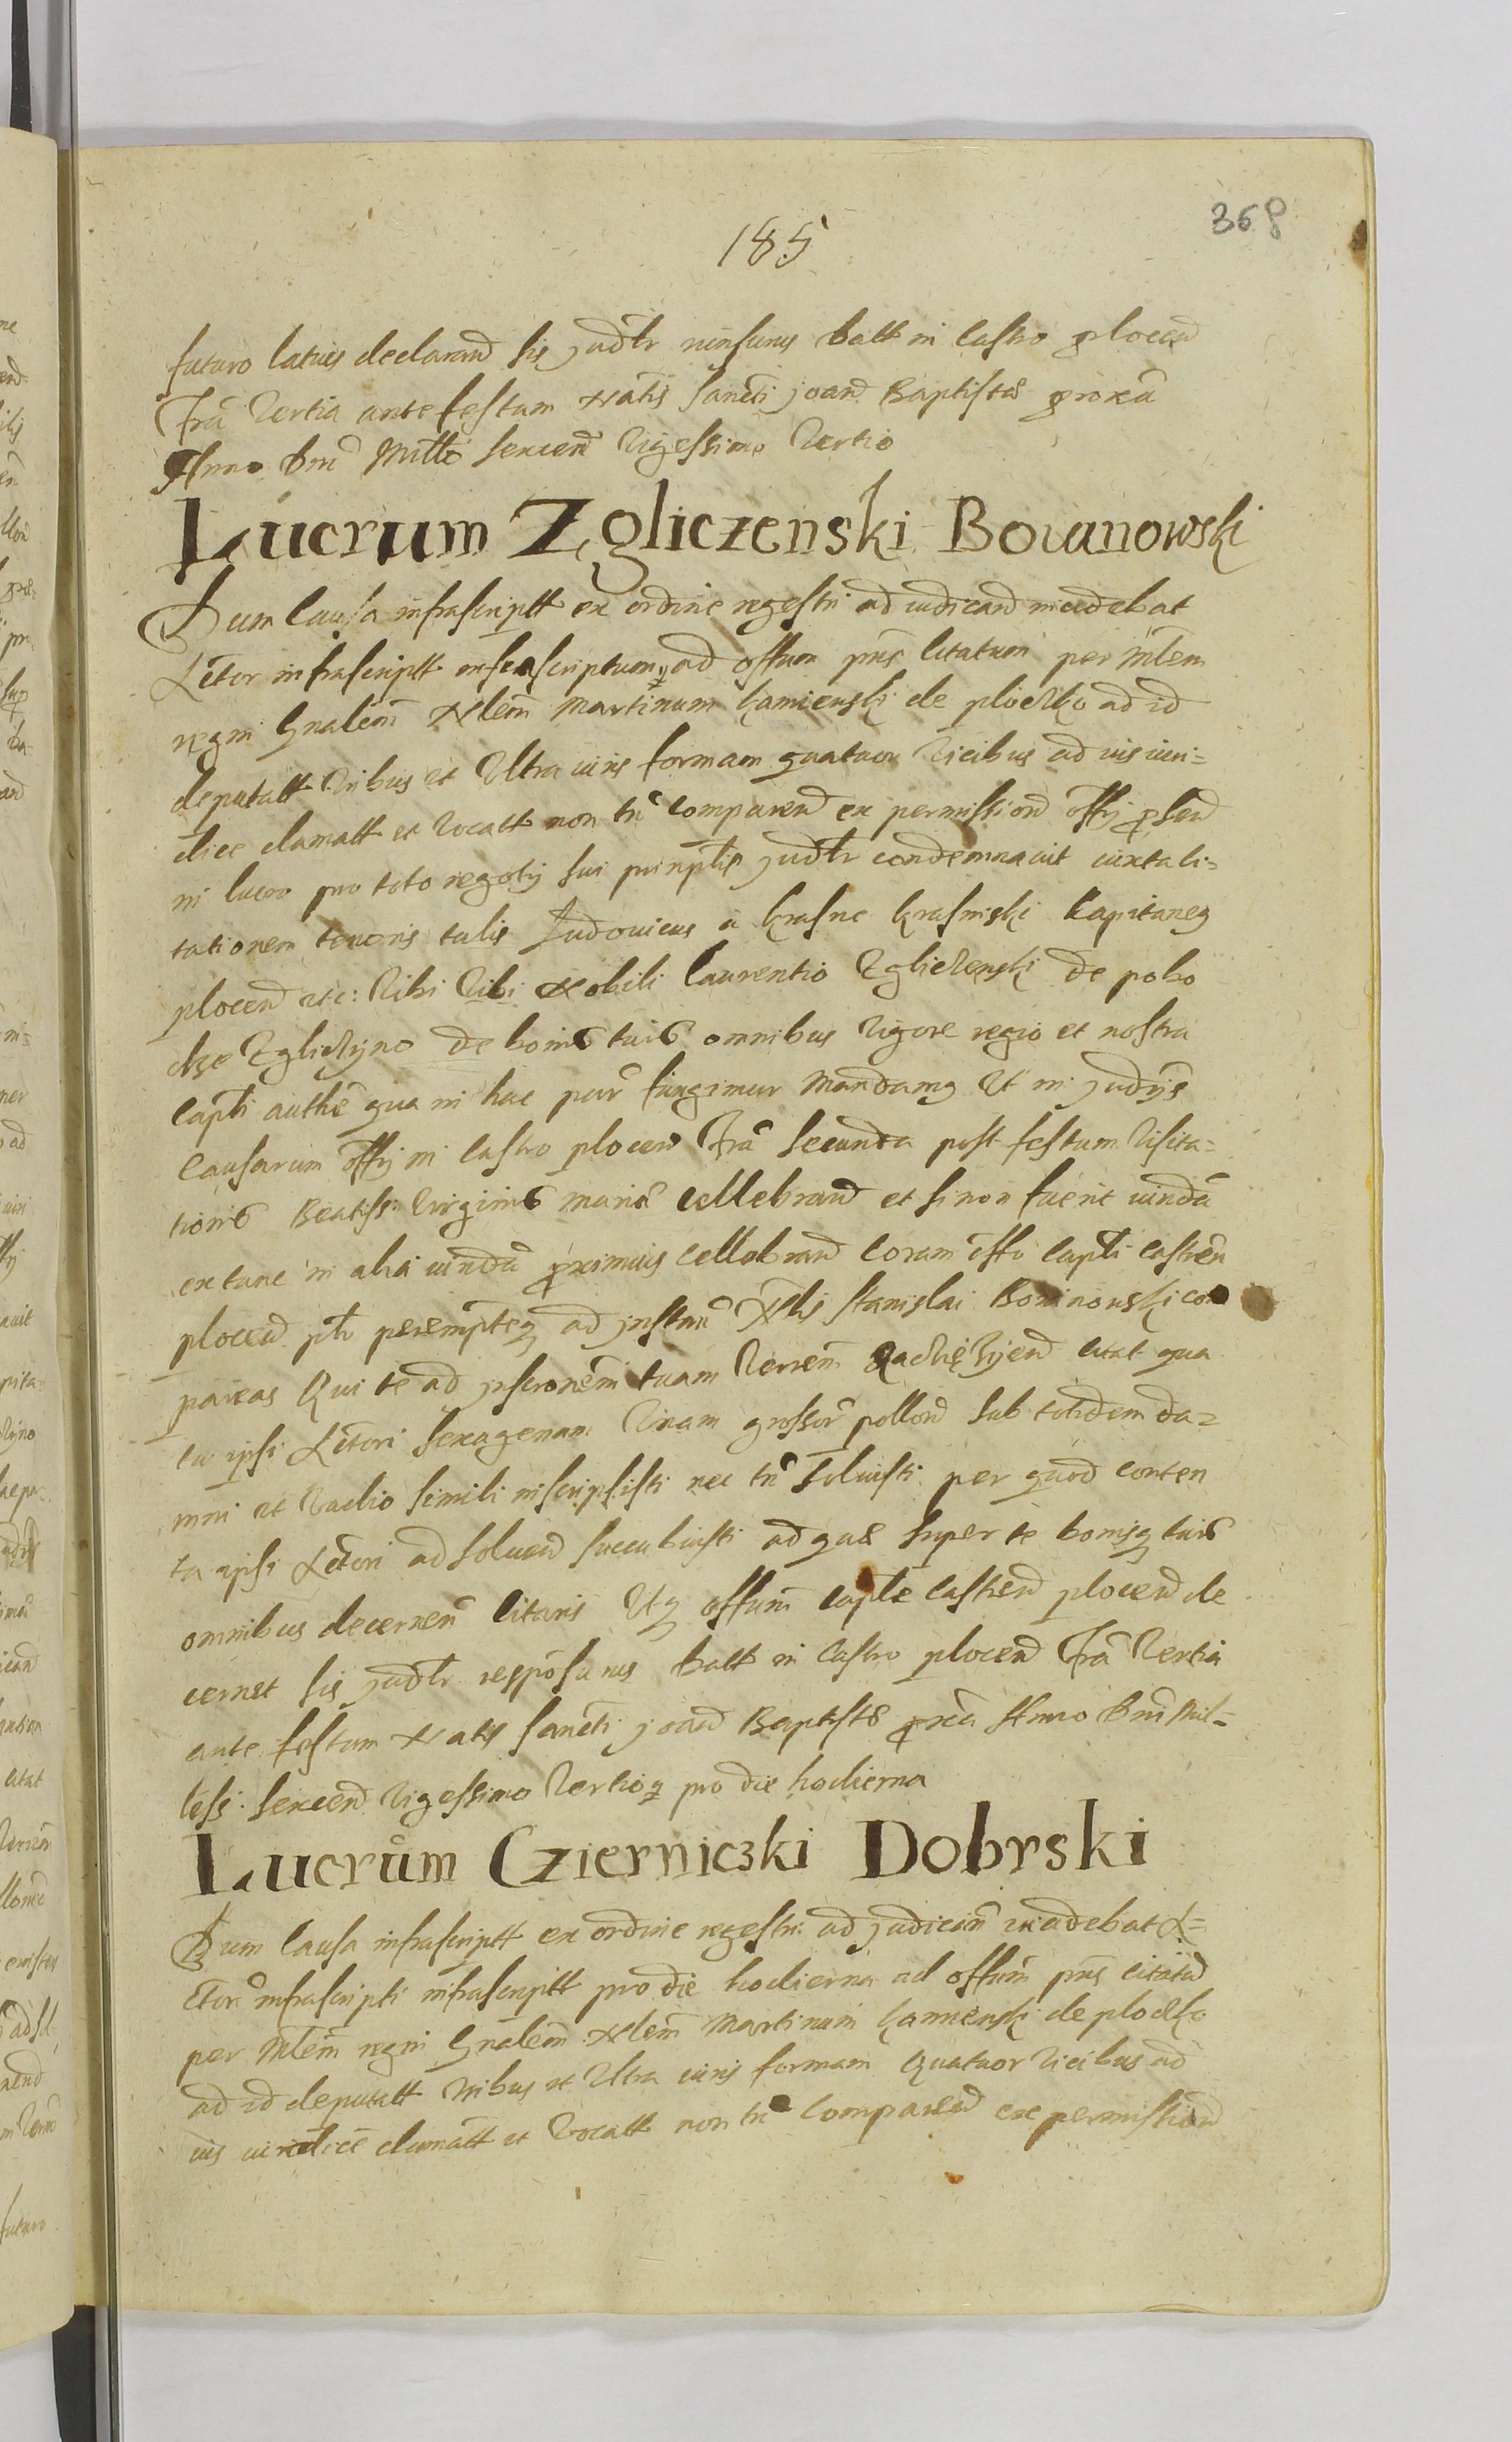 368
185
futuro latius declarand sis judtr rensurus Datt in Castro plocen
Fra Tertia ante festum Natis Sancti Joan Baptistæ proxa
Anno Dni Millo Sexcen Vigessimo Tertio
Lucrum Zgliczenski Boianowski
Dum Causa infrascriptt ex ordine regestri ad iudicand incidebat
Actor infrascriptt infrascriptum ad offum pns citatum per Mlem
regni Gnalem Nlem Martinum Kamienski de plocko ad id
deputatt Tribus et Ultra iuris formam quatuor vicibus ad ius iuri=
dice clamatt et vocatt non tn comparen ex permission offy psen
in lucro pro toto negoty sui principli judtr condemnavit iuxta ci=
tationem tenoris talis Ludovicus a Krasne Krasinski Capitaneq
plocen etc: Tibi Tibi Nobili Laurentio Zgliczenski de pobo
dze Zgliczyno de bonis tuis omnibus vigore regio et nostra
Capti authe qua in hac par fungimur Mandamq Ut in judys
Causarum offy in Castro plocen Fra Secunda post festum Visita=
tionis Beatiss: Virginis Mariæ cellebrand et si non fuerit iunda
ex tunc in alia iunda proximius Cellebrand Coram offo Capti Castren
plocen ptr perempteq ad instan Nlis Stanislai Boinowski com
pareas Qui te ad inscronem tuam Terrem Raciążyen citat qua
tu ipsi Actori Sexagenam Unam grossor pollon sub totidem da=
mni et vadio simili inscripsisti nec tn solvisti per quod conten
ta ipsi Actori ad solven succubuisti ad quæ super te bonisq tuis
omnibus decernen Citaris Utq offum Capte Castren plocen de
cernet sis judtr responsurus Datt in Castro plocen Fra Tertia
ante festum Natis Sancti Joan Baptistæ proxa Anno Dni Mil=
less: Sexcen Vigessimo Tertioq pro die hodierna
Lucrum Czierniczki Dobrski
Dum Causa infrascriptt ex ordine regestri ad judican incidebat A=
ctor infrascripti infrascriptt pro die hodierna ad offum pns citatu
per Mlem regni Gnalem Nlem Martinum Kamienski de plocko
ad id deputatt Tribus et Ultra iuris formam Quatuor vicibus ad
ius iuridice clamatt et vocatt non tn comparen ex permission